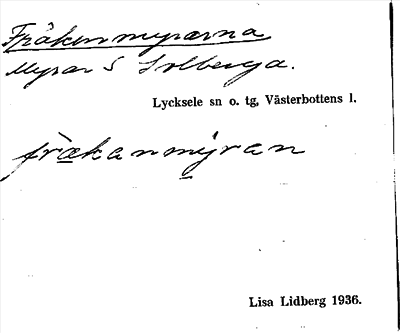 Fräkenmyrarna
Myrar S Solberga.
Lycksele sn o. tg, Västerbottens l.
frækanmỳran
Lisa Lidberg 1936.